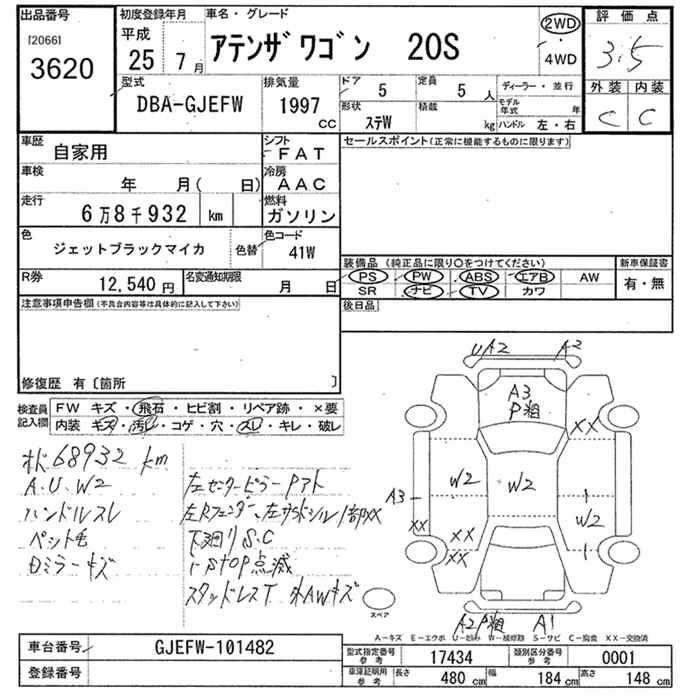 出品番号
[2066]
3620
初度登録年月
平成
25 7月
車名・グレード
アテンザワゴン 20S
2WD
4WD
評価点
3.5
外装 内装
C C
型式
DBA-GJEFW
排気量
1997 CC
ドア 5
定員 5人
形状 ステW
積載 kg
ディーラー・並行
モデル年式 年
ハンドル 左・右
車歴 自家用
シフト FAT
車検 年 月( 日)
冷房 AAC
走行 6万8千932 km
燃料 ガソリン
色 ジェットブラックマイカ 色替
色コード 41W
R券 12,540円
名変通知期限 月 日
セールスポイント(正常に機能するものに限ります)
装備品(純正品に限り○をつけてください)
PS PW ABS エアB AW
SR ナビ TV カワ
新車保証書
有・無
後日品
注意事項申告欄(不具合内容等は具体的に記入して下さい)
修復歴 有〔箇所 〕
検査員記入欄
FW キズ・飛石・ヒビ割・リペア跡・×要
内装 キズ・汚レ・コゲ・穴・スレ・キレ・破レ
68932 km
A.U.W2
ハンドルスレ
ペット毛
Dミラーキズ
左センターピラーPアト
左Rフェンダー、左サイドシル1部XX
下廻りS.C
i-stop点滅
スタッドレスT 外AWキズ
UA2 A2
A3
P粗
XX
W2 W2
A3
XX
XX
XX
W2
A2P粗 A1
スペア
A－キズ E－エクボ U－凹み W－補修跡 S－サビ C－腐食 XX－交換済
車台番号 GJEFW-101482
登録番号
型式指定番号 参考 17434
類別区分番号 参考 0001
車庫証明用 参考 長さ 480 cm 幅 184 cm 高さ 148 cm